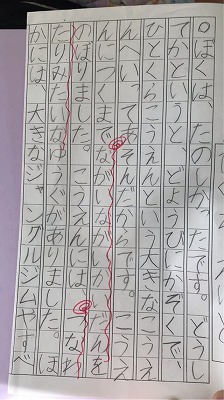 ○ぼくは、たのしかったです。どうし
てかというと、どようびにかぞくで、
ひとくらこうえんという大きなこうえ
んへいってあそんだからです。こうえ
んにつくまでながいながいかいだんを
のぼりました。こうえんには、つなわ
たりみたいなゆうぐがありました。ほ
かには、大きなジャングルジムやすべ